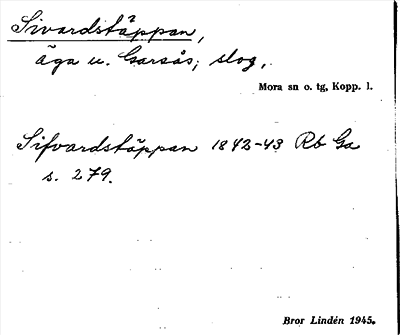 Sivardstäppan,
äga u. Garsås; slog.
Mora sn o. tg, Kopp. l.
Sifvardstäppan 1842-43 Rb Ga
s. 279.
Bror Lindén 1945.